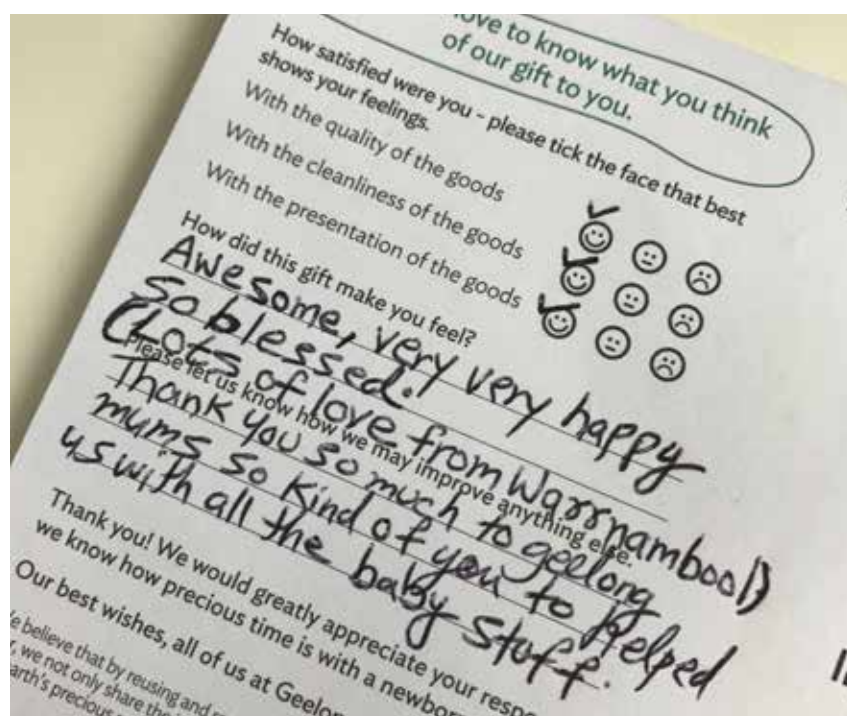 love to know what you think
of our gift to you.
How satisfied were you - please tick the face that best
shows your feelings.
With the quality of the goods
With the cleanliness of the goods
With the presentation of the goods
How did this gift make you feel?
Awesome, very very happy
so blessed.
(Lots of love from Warrnambool)
Please let us know how we may improve anything else.
Thank you so much to geelong
mums so kind of you to helped
us with all the baby stuff.
Thank you! We would greatly appreciate your
we know how precious time is with a newborn
Our best wishes, all of us at
believe that by reusing and
we not only share the
earth's precious